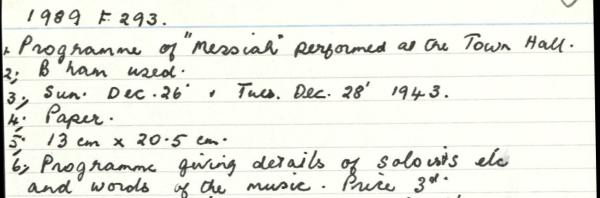 1989 F 293.
1. Programme of "Messiah" performed at the Town Hall.
2; B'ham used.
3; Sun. Dec. 26' & Tues. Dec. 28' 1943.
4; Paper.
5; 13 cm x 20.5 cm.
6; Programme giving details of soloists etc
and words of the music. Price 3d.